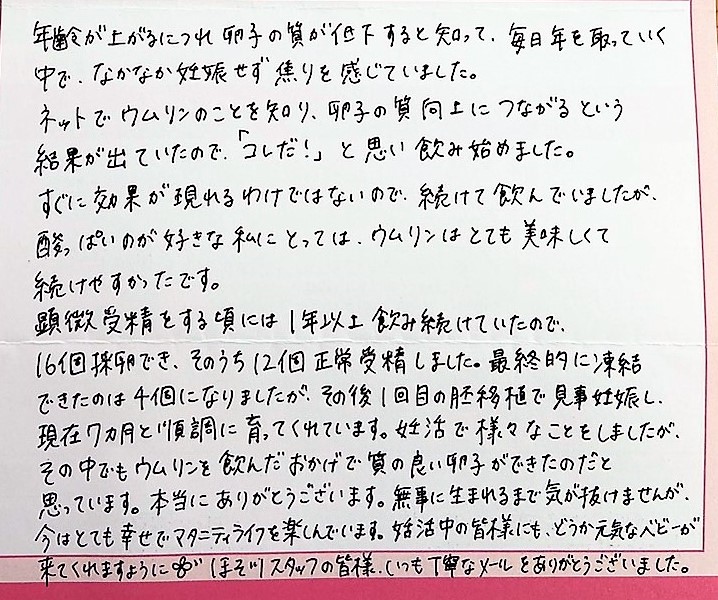 年齢が上がるにつれ卵子の質が低下すると知って、毎日年を取っていく
中で、なかなか妊娠せず焦りを感じていました。
ネットでウムリンのことを知り、卵子の質向上につながるという
結果が出ていたので、「コレだ!」と思い飲み始めました。
すぐに効果が現れるわけではないので、続けて飲んでいましたが、
酸っぱいのが好きな私にとっては、ウムリンはとても美味しくて
続けやすかったです。
顕微受精をする頃には1年以上飲み続けていたので、
16個採卵でき、そのうち12個正常受精しました。最終的に凍結
できたのは4個になりましたが、その後1回目の胚移植で見事妊娠し、
現在7カ月と順調に育ってくれています。妊活で様々なことをしましたが、
その中でもウムリンを飲んだおかげで質の良い卵子ができたのだと
思っています。本当にありがとうございます。無事に生まれるまで気が抜けませんが、
今はとても幸せでマタニティライフを楽しんでいます。妊活中の皆様にも、どうか元気なベビーが
来てくれますように スタッフの皆様、いつも丁寧なメールをありがとうございました。